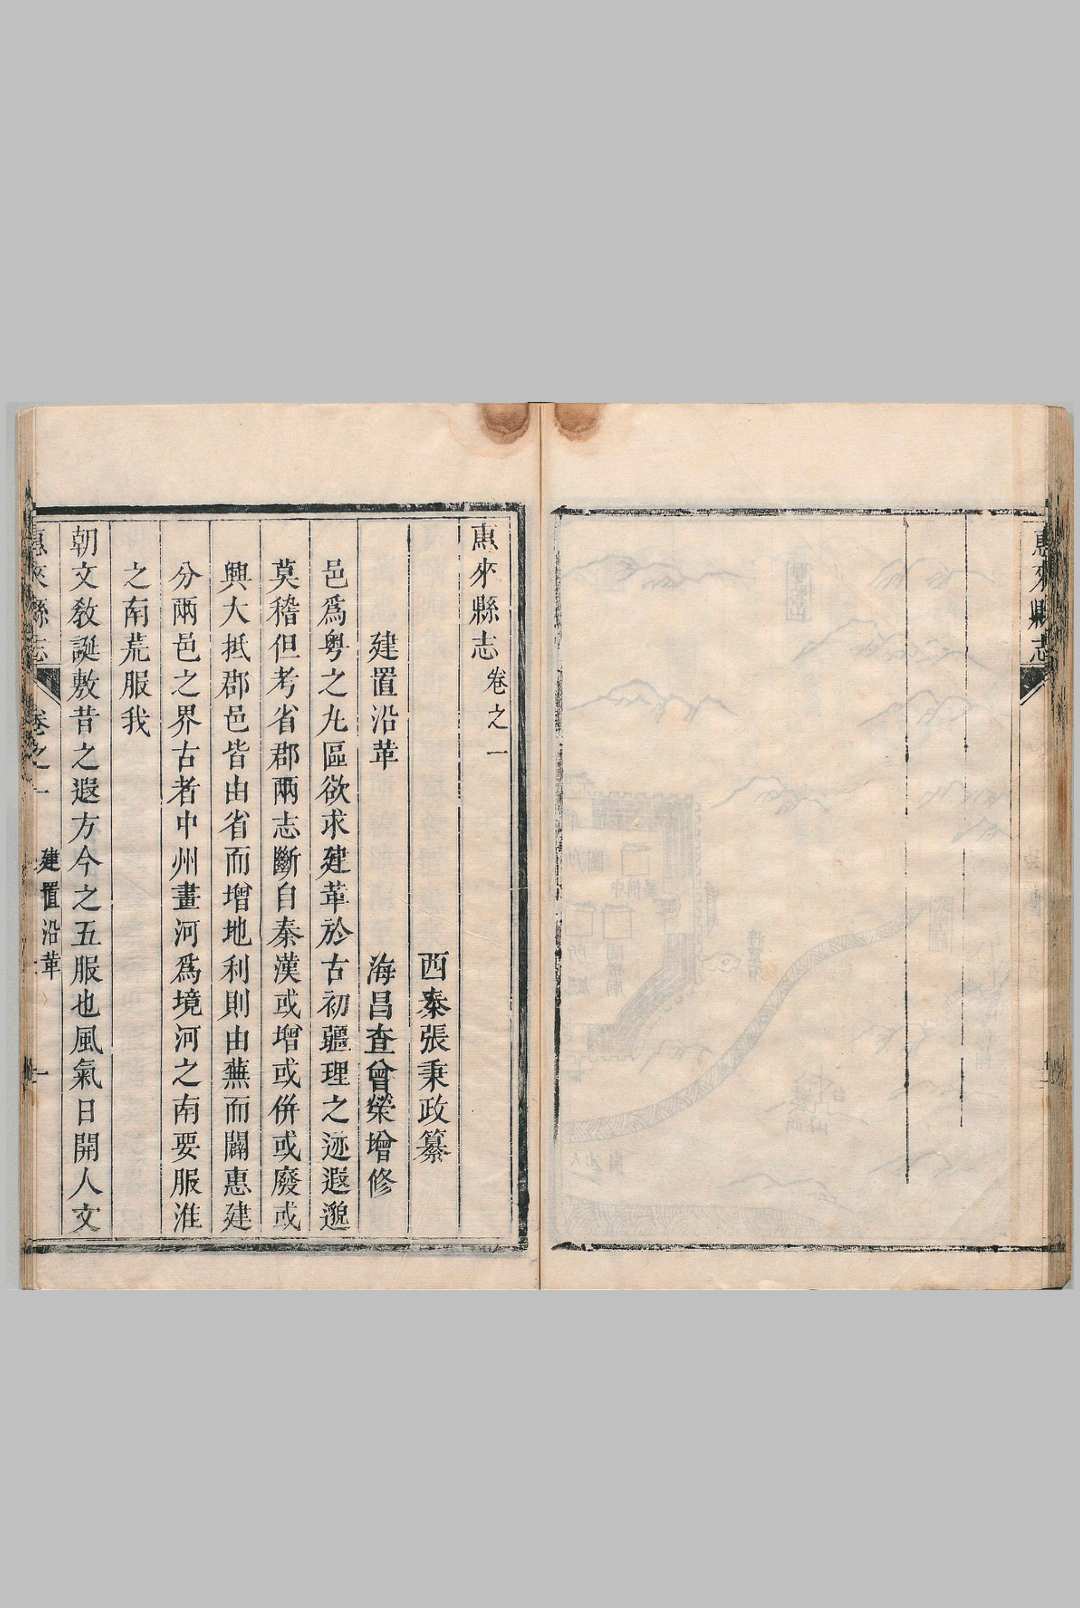 惠來縣志
惠來縣志卷之一
西秦張秉政纂
建置沿革　海昌查曾榮增修
邑爲粤之九區欲求建革於古初疆理之迹遐邈
莫稽但考省郡兩志斷自秦漢或增或併或廢或
興大抵郡邑皆由省而增地利則由蕪而闢惠建
分兩邑之界古者中州畫河爲境河之南要服淮
之南荒服我
朝文敎誕敷昔之遐方今之五服也風氣日開人文
惠來縣志　卷之一　建置沿革　一